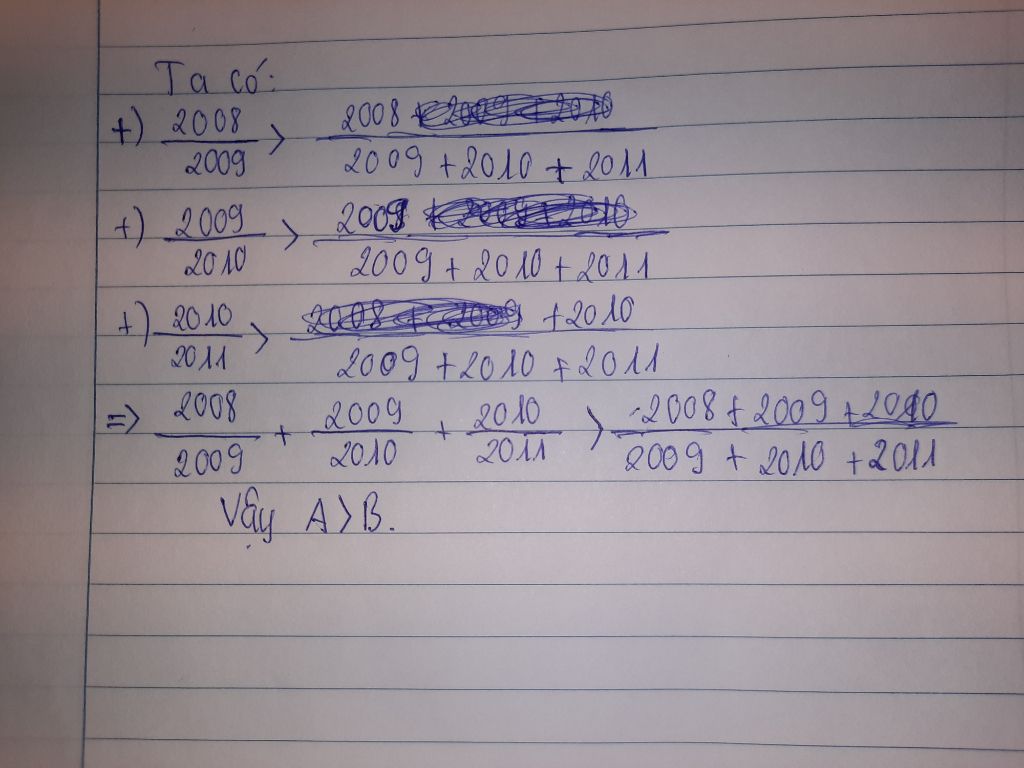 Ta có:
+) 2008/2009 > 2008/(2009 + 2010 + 2011)
+) 2009/2010 > 2009/(2009 + 2010 + 2011)
+) 2010/2011 > +2010/(2009 + 2010 + 2011)
=> 2008/2009 + 2009/2010 + 2010/2011 > (2008 + 2009 + 2010)/(2009 + 2010 + 2011)
Vậy A > B.